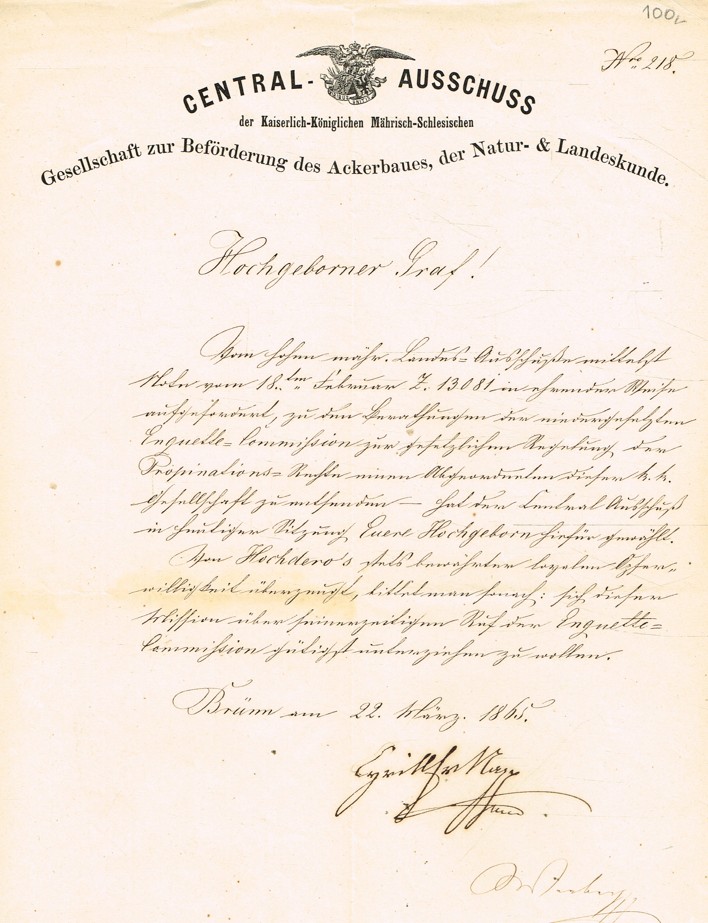 100,-
Nro 218.
CENTRAL-AUSSCHUSS
der Kaiserlich-Königlichen Mährisch-Schlesischen
Gesellschaft zur Beförderung des Ackerbaues, der Natur- & Landeskunde.
Hochgeborner Graf!
Vom hohen mähr. Landes-Ausschuße mittelst
Note vom 18.ten Februar Z. 13081 in ehrender Weise
aufgefordert, zu den Berathungen der niedergesetzten
Enquette-Commission zur gesetzlichen Regelung der
Propinations-Rechte einen Abgeordneten dieser k. k.
Gesellschaft zu entsenden — hat der Central Ausschuß
in heutiger Sitzung Euere Hochgeborn hiefür gewählt.
Von Hochdero's stets bewährter loyalen Opfer-
willigkeit überzeugt, bittet man sonach: sich dieser
Mission über seinerzeitigen Ruf der Enquette-
Commission gütigst unterziehen zu wollen.
Brünn am 22. März. 1865.
Cyrill Napp